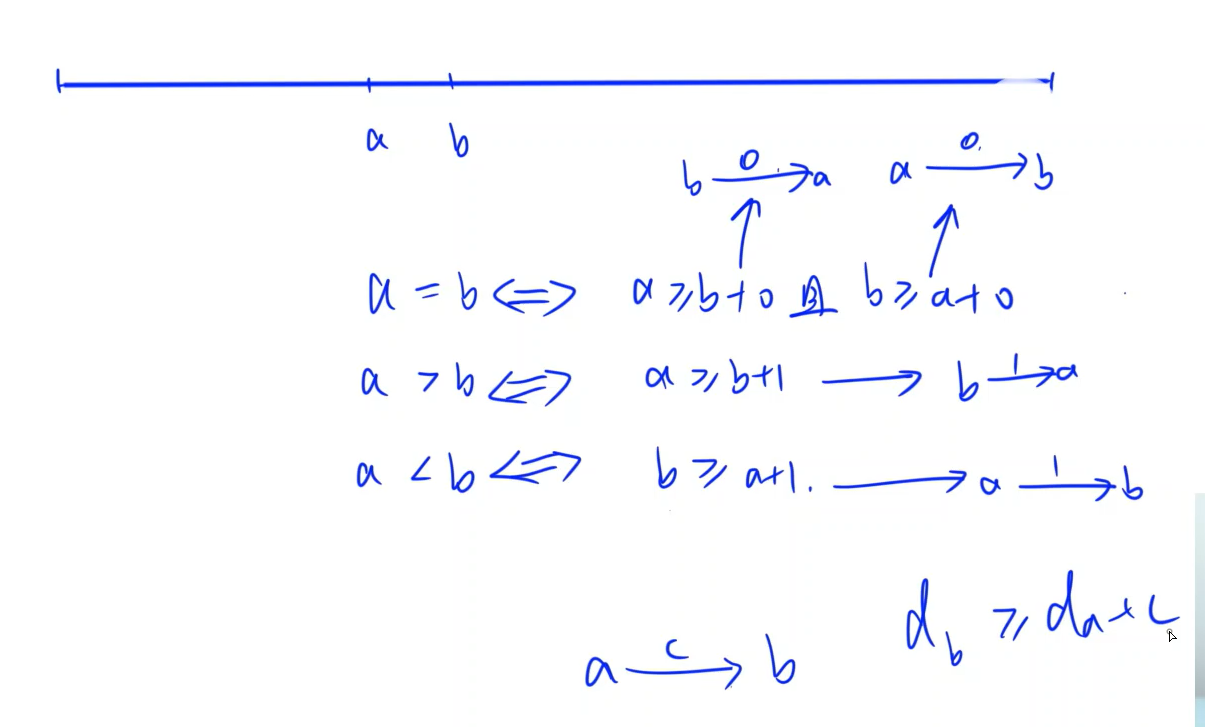 a b
b 0→ a a 0→ b
a = b ⇔ a ≥ b + 0 且 b ≥ a + 0
a > b ⇔ a ≥ b+1 → b 1→ a
a < b ⇔ b ≥ a+1. → a 1→ b
d_b ≥ d_a + c
a c→ b